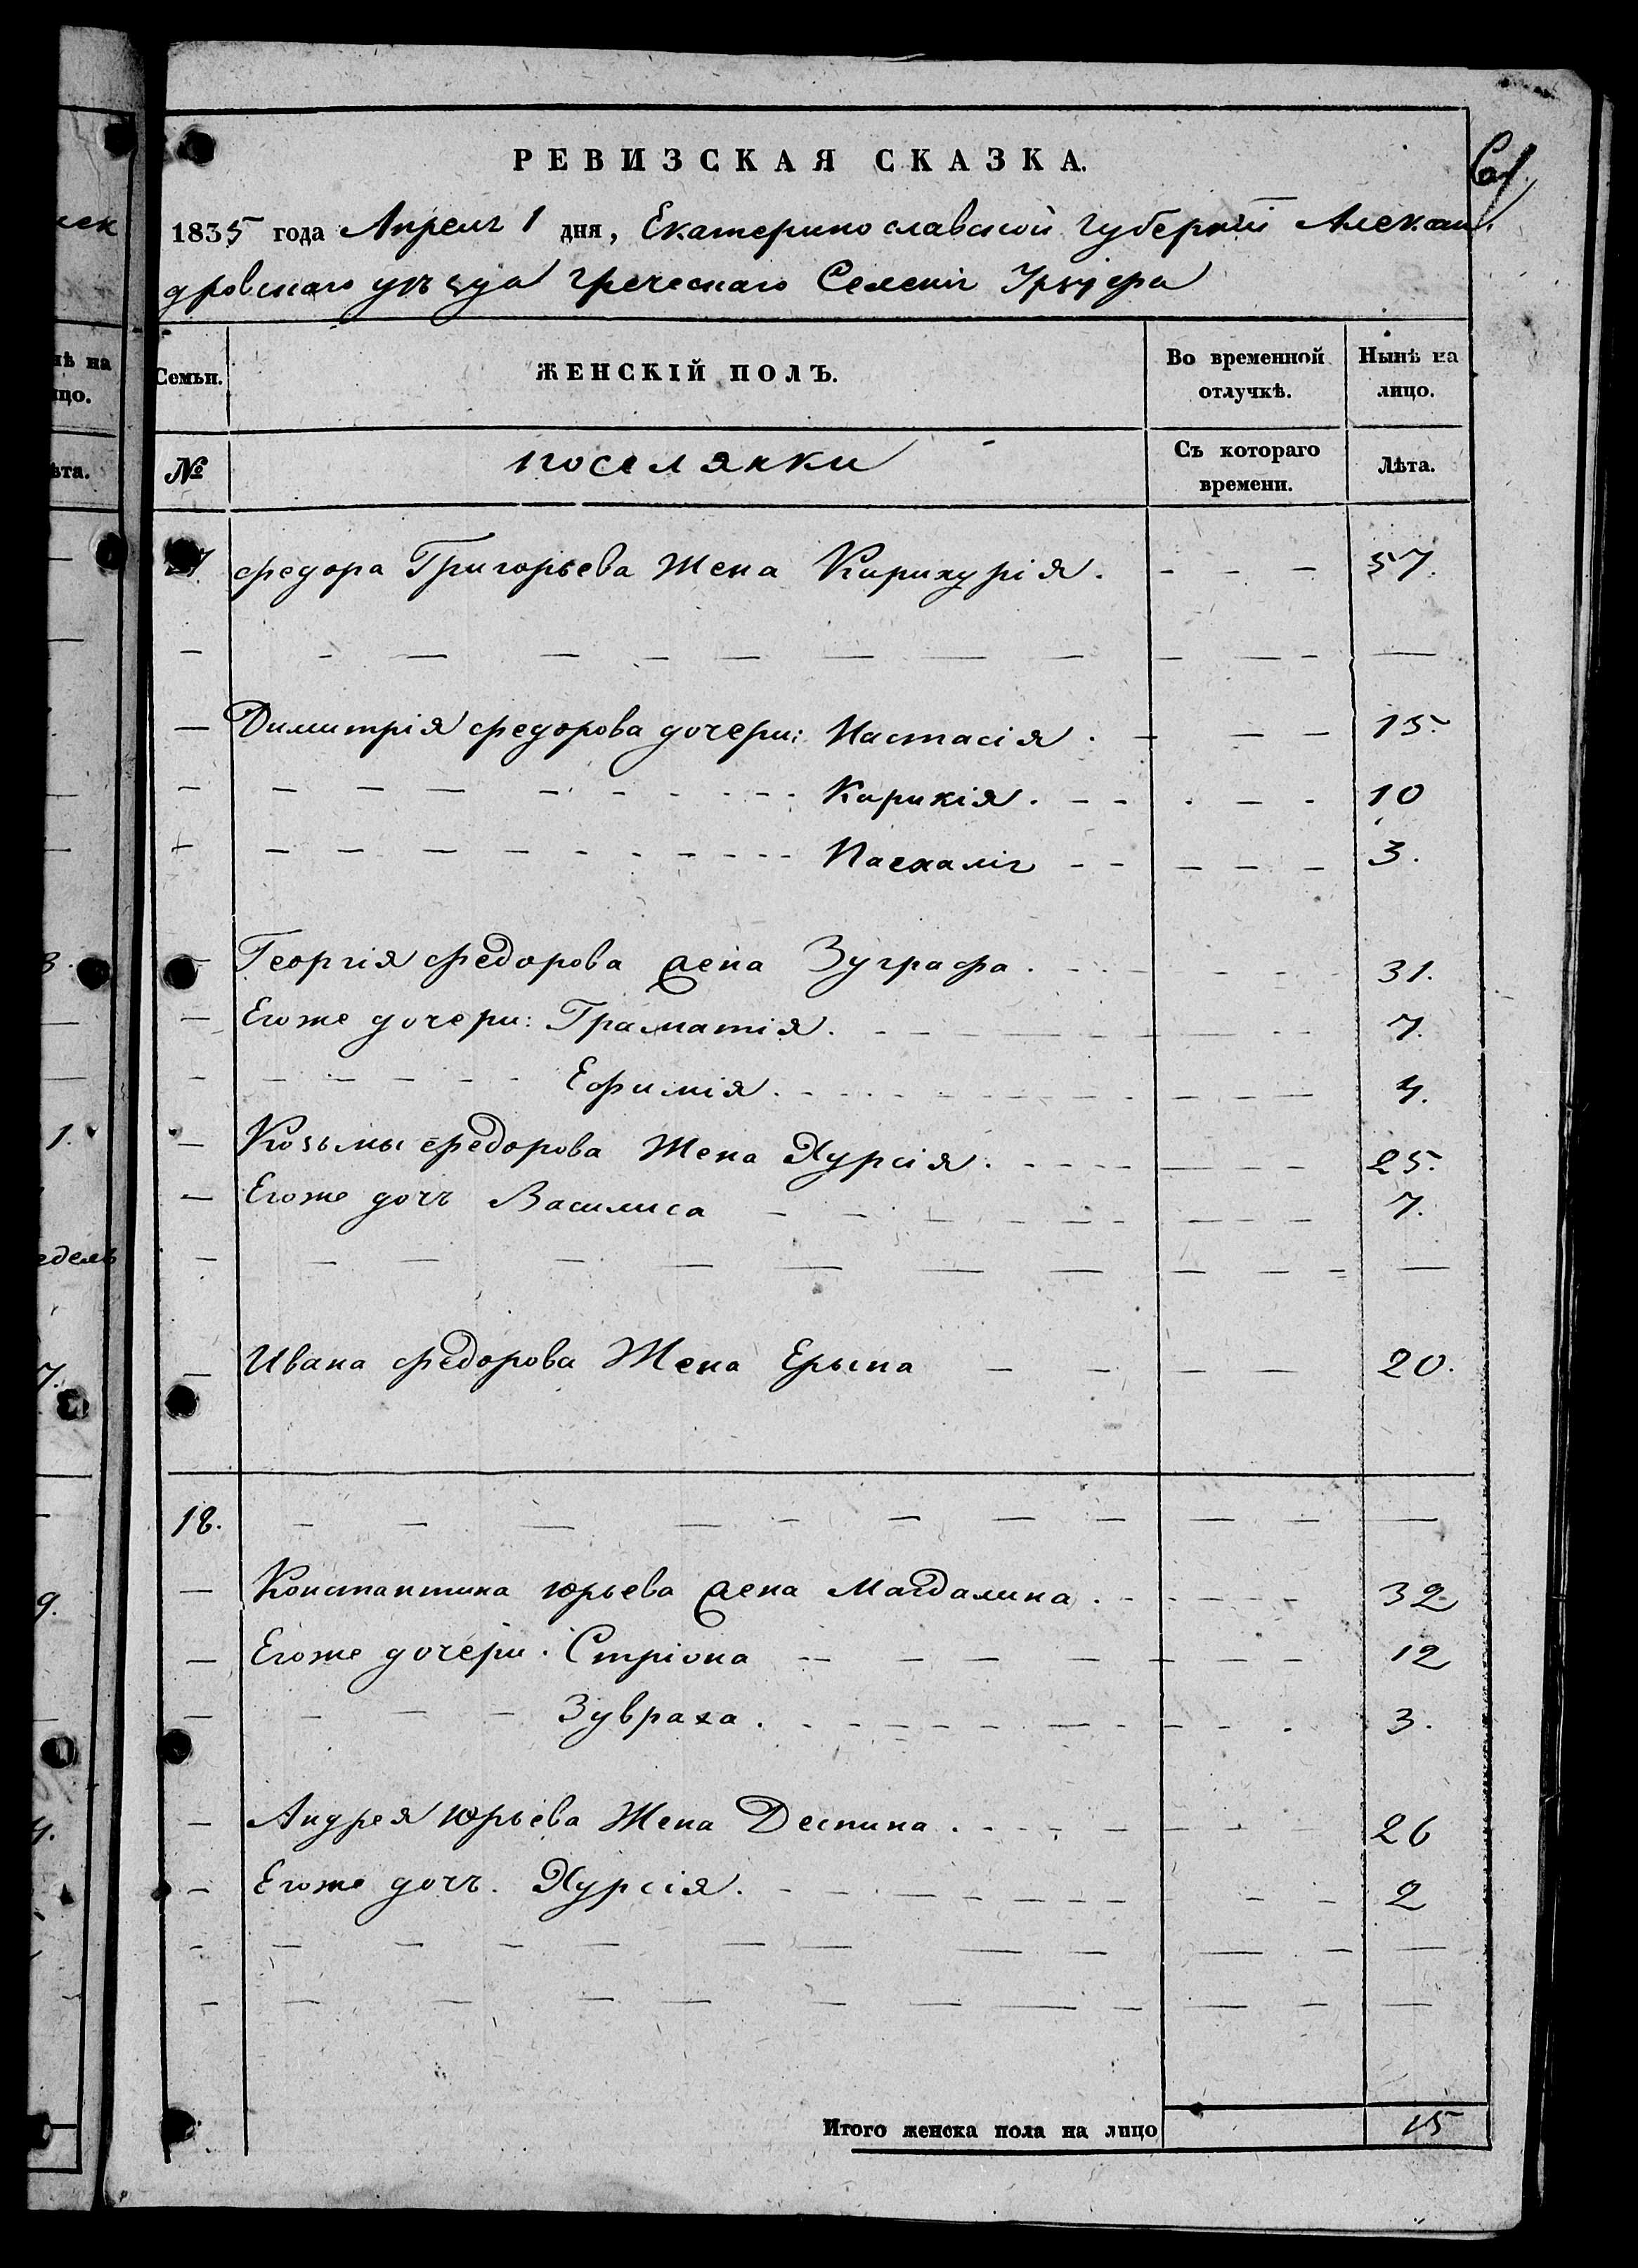 61
РЕВИЗСКАЯ СКАЗКА.
1835 года Апреля 1 дня, Екатеринославской губернии Алексан
дровскаго уѣзда греческаго Селенія
Семьи. ЖЕНСКІЙ ПОЛЪ. Во временной отлучкѣ. Нынѣ на лицо.
№ поселянки Съ котораго времени. Лѣта.
федора Григорьева жена Кирикурія. - - - 57.
Димитрія федорова дочери: Настасія. - - - 15.
Кирикія. - - - 10
Пасхалія - - - 3.
Георгія федорова жена Зуграфа. - - - 31.
Егоже дочери: Граматія. - - - 7.
Ефимія. - - - 4.
Козьмы федорова жена Хурсія. - - - 25.
Егоже дочь Василиса - - - 7.
Ивана федорова жена Ерына - - - 20.
18.
Константина юрьева жена Магдалина. - - - 32
Егоже дочери: Стріона - - - 12
Зувраха. - - - 3.
Андрея юрьева жена Деспина. - - - 26
Егоже дочь. Хурсія. - - - 2
Итого женска пола на лицо 15